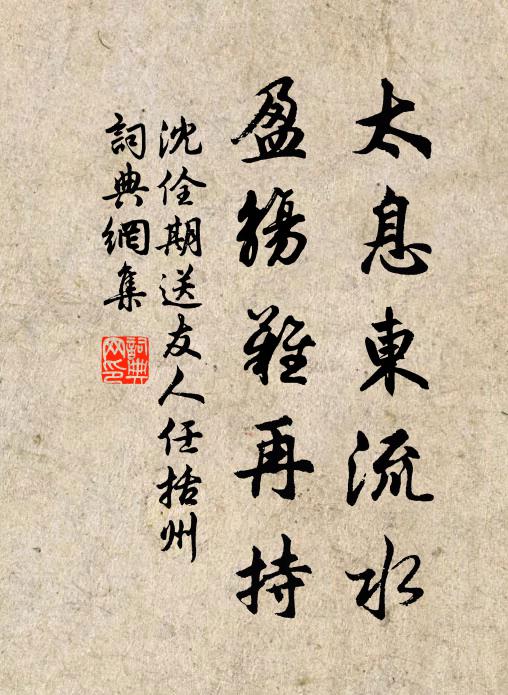 太息東流水
盈觴難再持
沈佺期送友人任括州
詞典網集
詞典網印